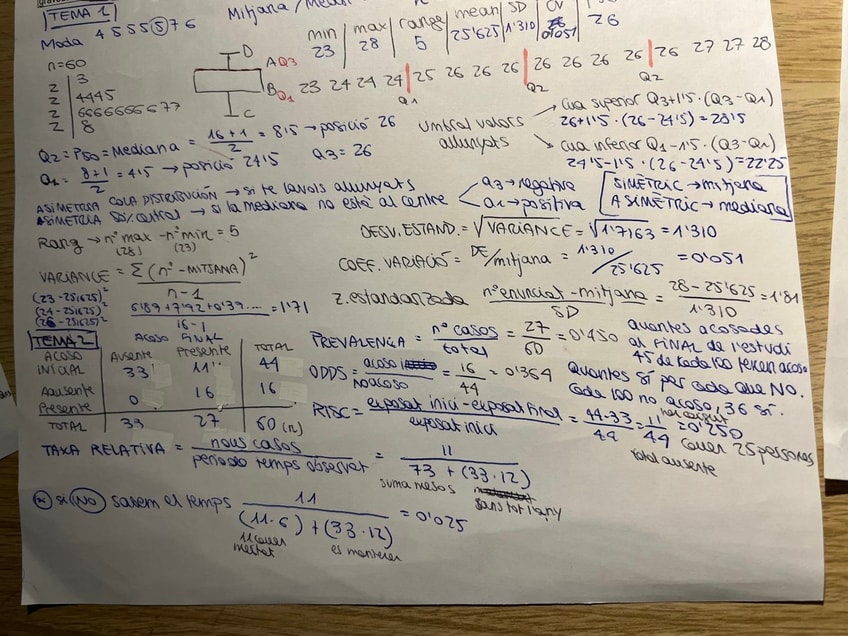 TEMA 1
Mitjana / Media
Moda 4 5 5 5 5 7 6
min | max | range | mean | SD | CV
23 | 28 | 5 | 25'625 | 1'310 | 0'051 | 26
n=60
D
A Q3
B Q1
C
23 24 24 24 | 25 26 26 26 | 26 26 26 26 | 26 27 27 28
Q1 Q2 Q2
2 | 3
2 | 4445
2 | 6666666677
2 | 8
Q2 = P50 = Mediana = 16+1 / 2 = 8'5 → posició 26
Q1 = 8+1 / 2 = 4'5 → posició 24'5 Q3 = 26
Umbral valors allunyats
cua superior Q3+1'5·(Q3-Q1)
26+1'5·(26-24'5) = 28'5
cua inferior Q1-1'5·(Q3-Q1)
24'5-1'5·(26-24'5) = 22'25
ASIMETRIA COLA DISTRIBUCIÓN → si te valors allunyats
ASIMETRIA 50% central → si la mediana no està al centre
Q3 → negativa
Q1 → positiva
SIMÈTRIC → mitjana
ASIMÈTRIC → mediana
Rang → nº max - nº min = 5
(28) (23)
DESV. ESTAND. = √VARIANCE = √1'7163 = 1'310
VARIANCE = Σ(nº - MITJANA)² / n-1
COEF. VARIACIÓ = DE/mitjana = 1'310 / 25'625 = 0'051
(23-25'625)²
(24-25'625)²
(26-25'625)²
6'89+7'92+0'39.... / 16-1 = 1'71
Z. estandarizada nº enunciat - mitjana / SD = 28-25'625 / 1'310 = 1'81
TEMA 2
ACOSO FINAL
ACOSO INICIAL | Ausente | Presente | TOTAL
Aausente | 33 | 11 | 44
Presente | 0 | 16 | 16
TOTAL | 33 | 27 | 60 (n)
PREVALENÇA = nº casos / total = 27 / 60 = 0'450
quantes acosades al FINAL de l'estudi
45 de kada 100 tenen acoso
ODDS = acoso / no acoso = 16 / 44 = 0'364
Quantes SÍ per cada que NO.
Cade 100 no acoso, 36 sí.
RISC = exposat inici - exposat final / exposat inici = 44-33 / 44 = 11 / 44 = 0'250
total ausente
25 persones
TAXA RELATIVA = nous casos / periodo temps observat = 11 / 73 + (33·12)
suma mesos
sans tot l'any
* si NO sabem el temps 11 / (11·6) + (33·12) = 0'025
11 auer meitat
es mantener